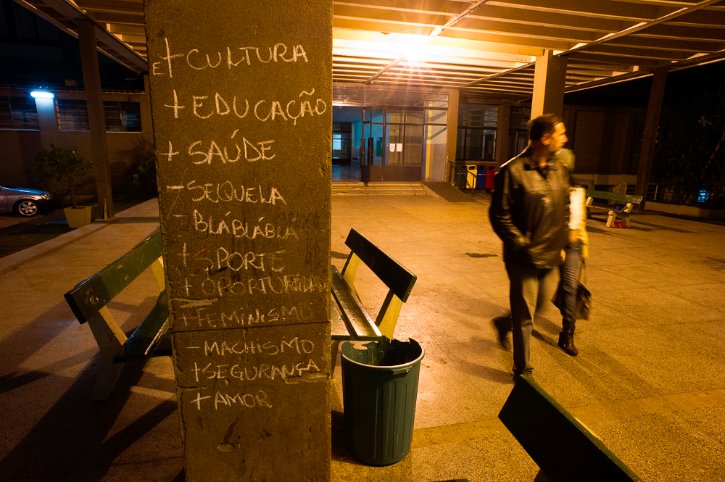 E + CULTURA
+ EDUCAÇÃO
+ SAÚDE
- SEQUELA
- BLÁBLÁBLÁ
+ SPORTE
+ OPORTUNIDA
+ FEMINISMO
- MACHISMO
+ SEGURANÇA
+ AMOR